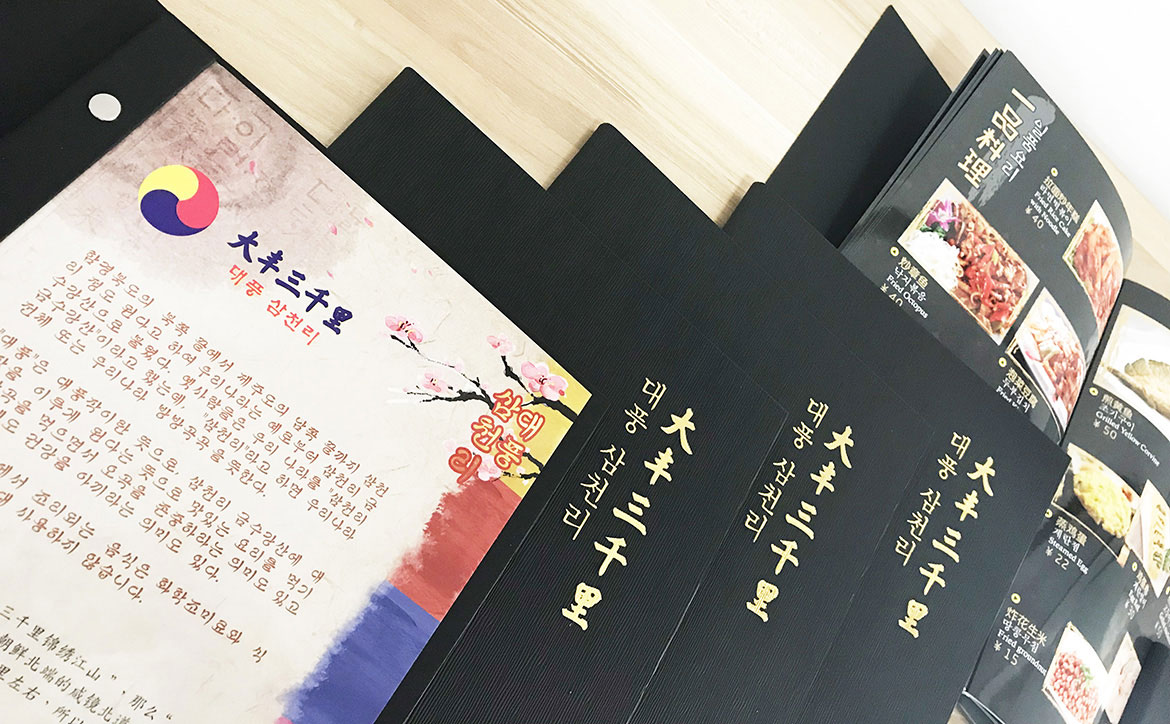 大丰三千里
대풍 삼천리
함경북도의 북쪽 끝에서 제주도의 남쪽 끝까지 삼천
리 정도 된다고 하여 우리나라는 예로부터 삼천리 금
수강산으로 불렸다. 옛사람들은 우리 나라를 "삼천리
금수강산"이라고 했는데 "삼천리"라고 하면 우리나라
전체 또는 우리나라 방방곡곡을 뜻한다.
"대풍"은 대풍작이란 뜻으로 삼천리 금수강산에 대
이루게 된다는 뜻으로 맛있는 요리를 먹기
먹으면서 오곡을 존중하라는 의미도 있고
건강을 아끼라는 의미도 있다.
조리되는 음식은 화학조미료와 식
사용하지 않습니다.
三千里锦绣江山", 那么"
朝鲜北端的咸镜北道
里左右,
대풍
삼천
리
大丰三千里
대풍 삼천리
大丰三千里
대풍 삼천리
大丰三千里
대풍 삼천리
一品料理
일품요리
Fried Rice Cake
with Noodle
40
炒章鱼
낙지볶음
Fried Octopus
40
두부김치
조기구이
Grilled Yellow Corvina
50
蒸鸡蛋
계란찜
Steamed Egg
22
炸花生米
땅콩튀김
Fried groundnut
15